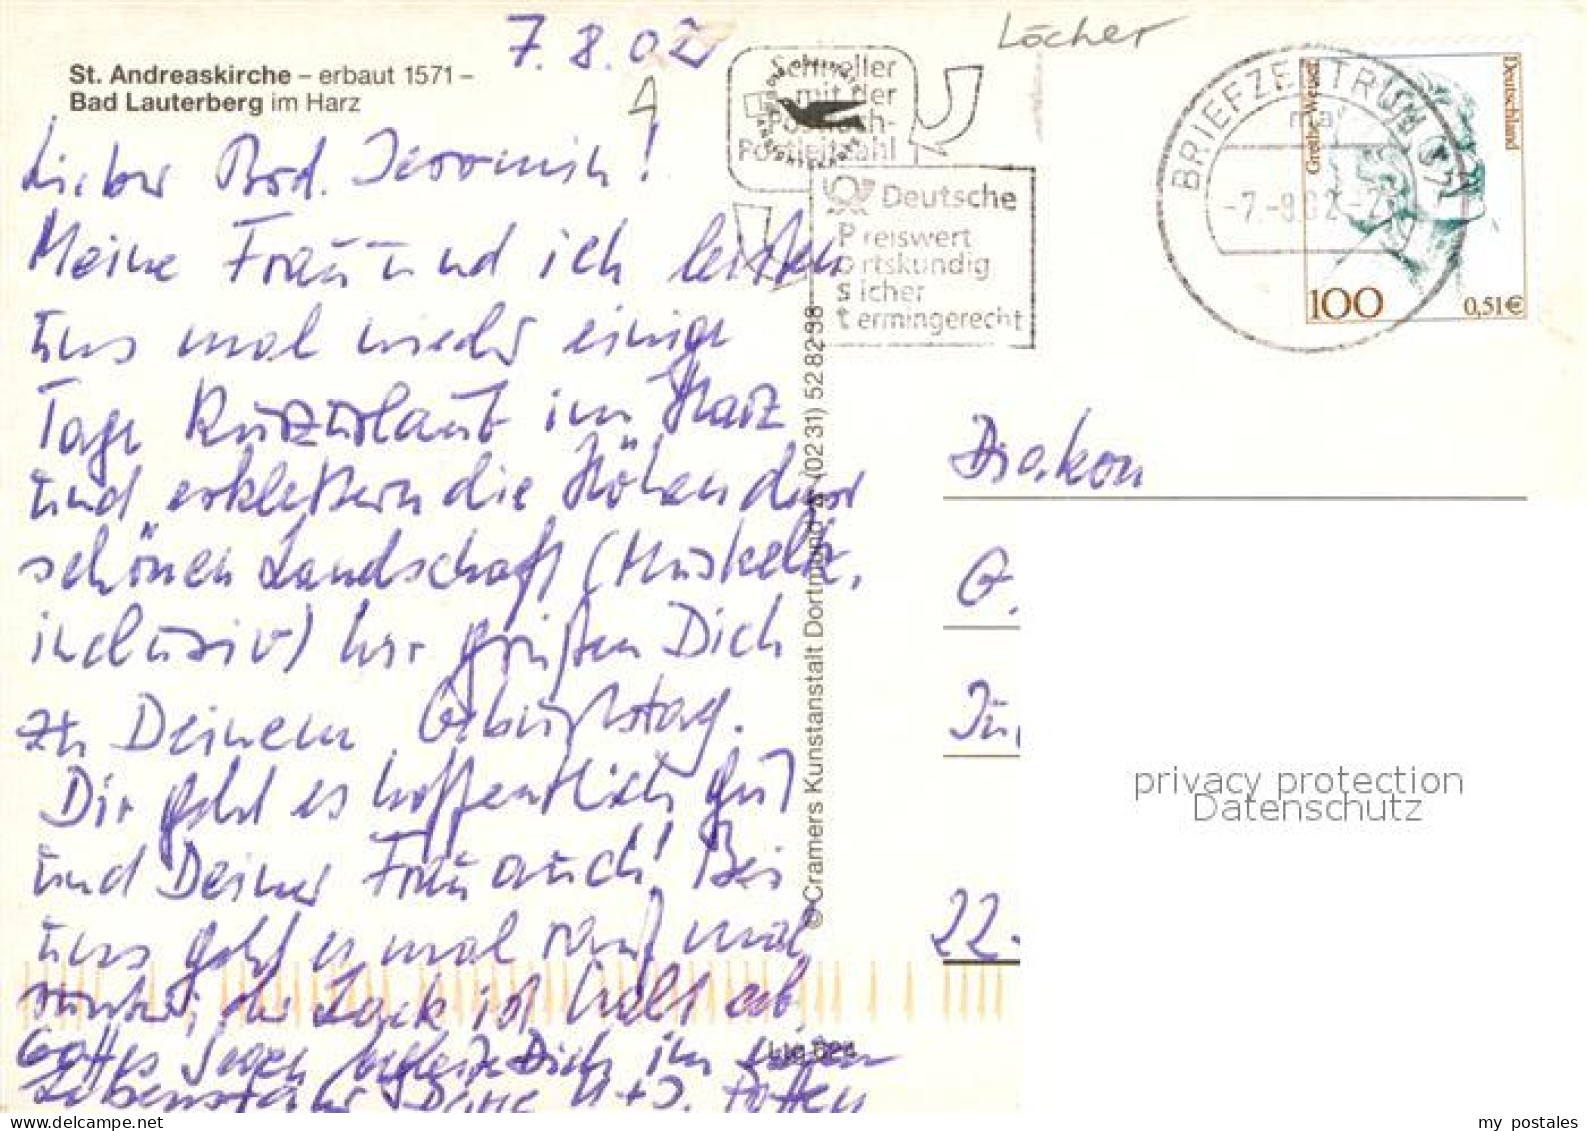 7.8.02
Löcher
St. Andreaskirche – erbaut 1571 –
Bad Lauterberg im Harz
Schneller
mit der
Postfach-
Postleitzahl
Deutsche
Preiswert
ortskundig
sicher
termingerecht
BRIEFZENTRUM 37
ma
-7.-8.02-2
Grethe Weiser
Deutschland
100
0,51€
Lieber Brd.
Meine Frau und ich leisten
uns mal wieder einige
Tage Kurzurlaub im Harz
und erklettern die Höhen dieser
schönen Landschaft (Muskelk.
inclusiv) Wir grüßen Dich
zu Deinem Geburtstag.
Dir geht es hoffentlich gut
und Deiner Frau auch! Bei
uns geht es mal rauf mal
runter; der Lack ist halt ab.
Gottes Segen begleite Dich im neuen
Lebensjahr Deine H + J.
© Cramers Kunstanstalt Dortmund (02 31) 52 82 98
Diakon
G.
Jü
22.
privacy protection
Datenschutz
delcampe.net
my_postales